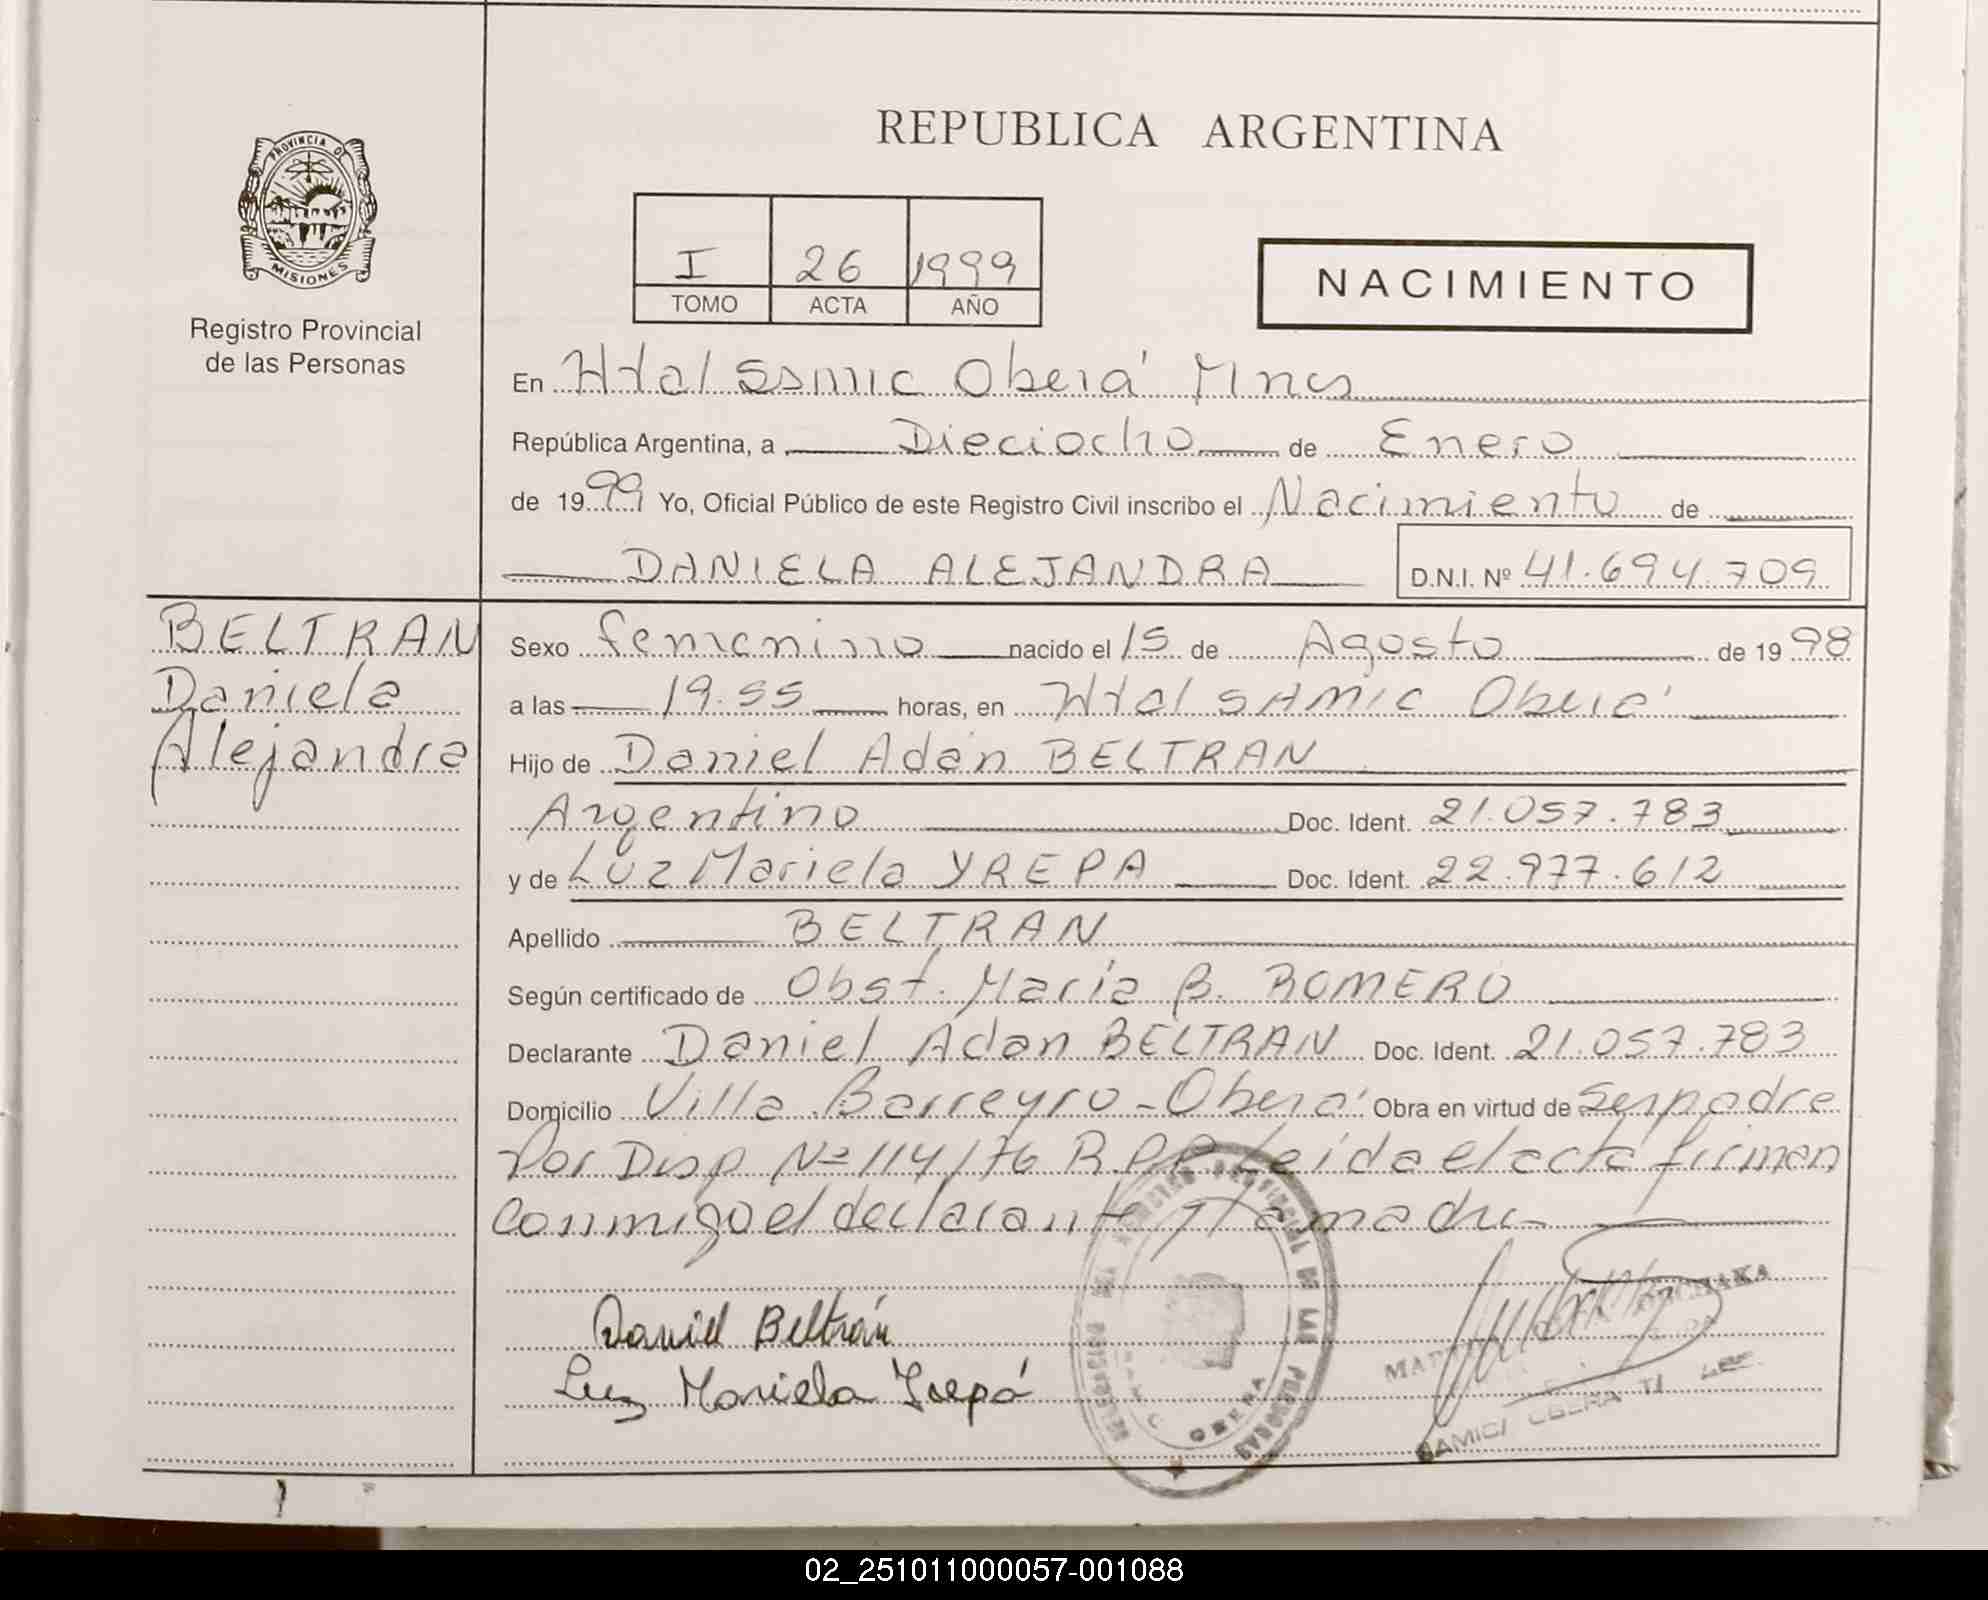 REPUBLICA ARGENTINA
PROVINCIA D
MISIONES
Registro Provincial
de las Personas
I 26 1999
TOMO ACTA AÑO
NACIMIENTO
En Htal Ssmic Oberá Mnes
República Argentina, a Dieciocho de Enero
de 1999 Yo, Oficial Público de este Registro Civil inscribo el Nacimiento de
DANIELA ALEJANDRA D.N.I. Nº 41.694.709
BELTRAN
Daniela
Alejandra
Sexo femenino nacido el 15 de Agosto de 1998
a las 19.55 horas, en Htal SAMIC Oberá
Hijo de Daniel Adán BELTRAN
Argentino Doc. Ident. 21.057.783
y de Luz Mariela YREPA Doc. Ident. 22.977.612
Apellido BELTRAN
Según certificado de Obst. María B. ROMERO
Declarante Daniel Adan BELTRAN Doc. Ident. 21.057.783
Domicilio Villa Barreyro - Oberá Obra en virtud de ser padre
Por Disp Nº 114/76 R.P.P. Leída el acta firman
conmigo el declarante y la madre
Daniel Beltrán
Luz Mariela Yrepá
PROVINCIAL DE LAS PERSONAS
OBERA
SAMIC/ OBERA
02_251011000057-001088